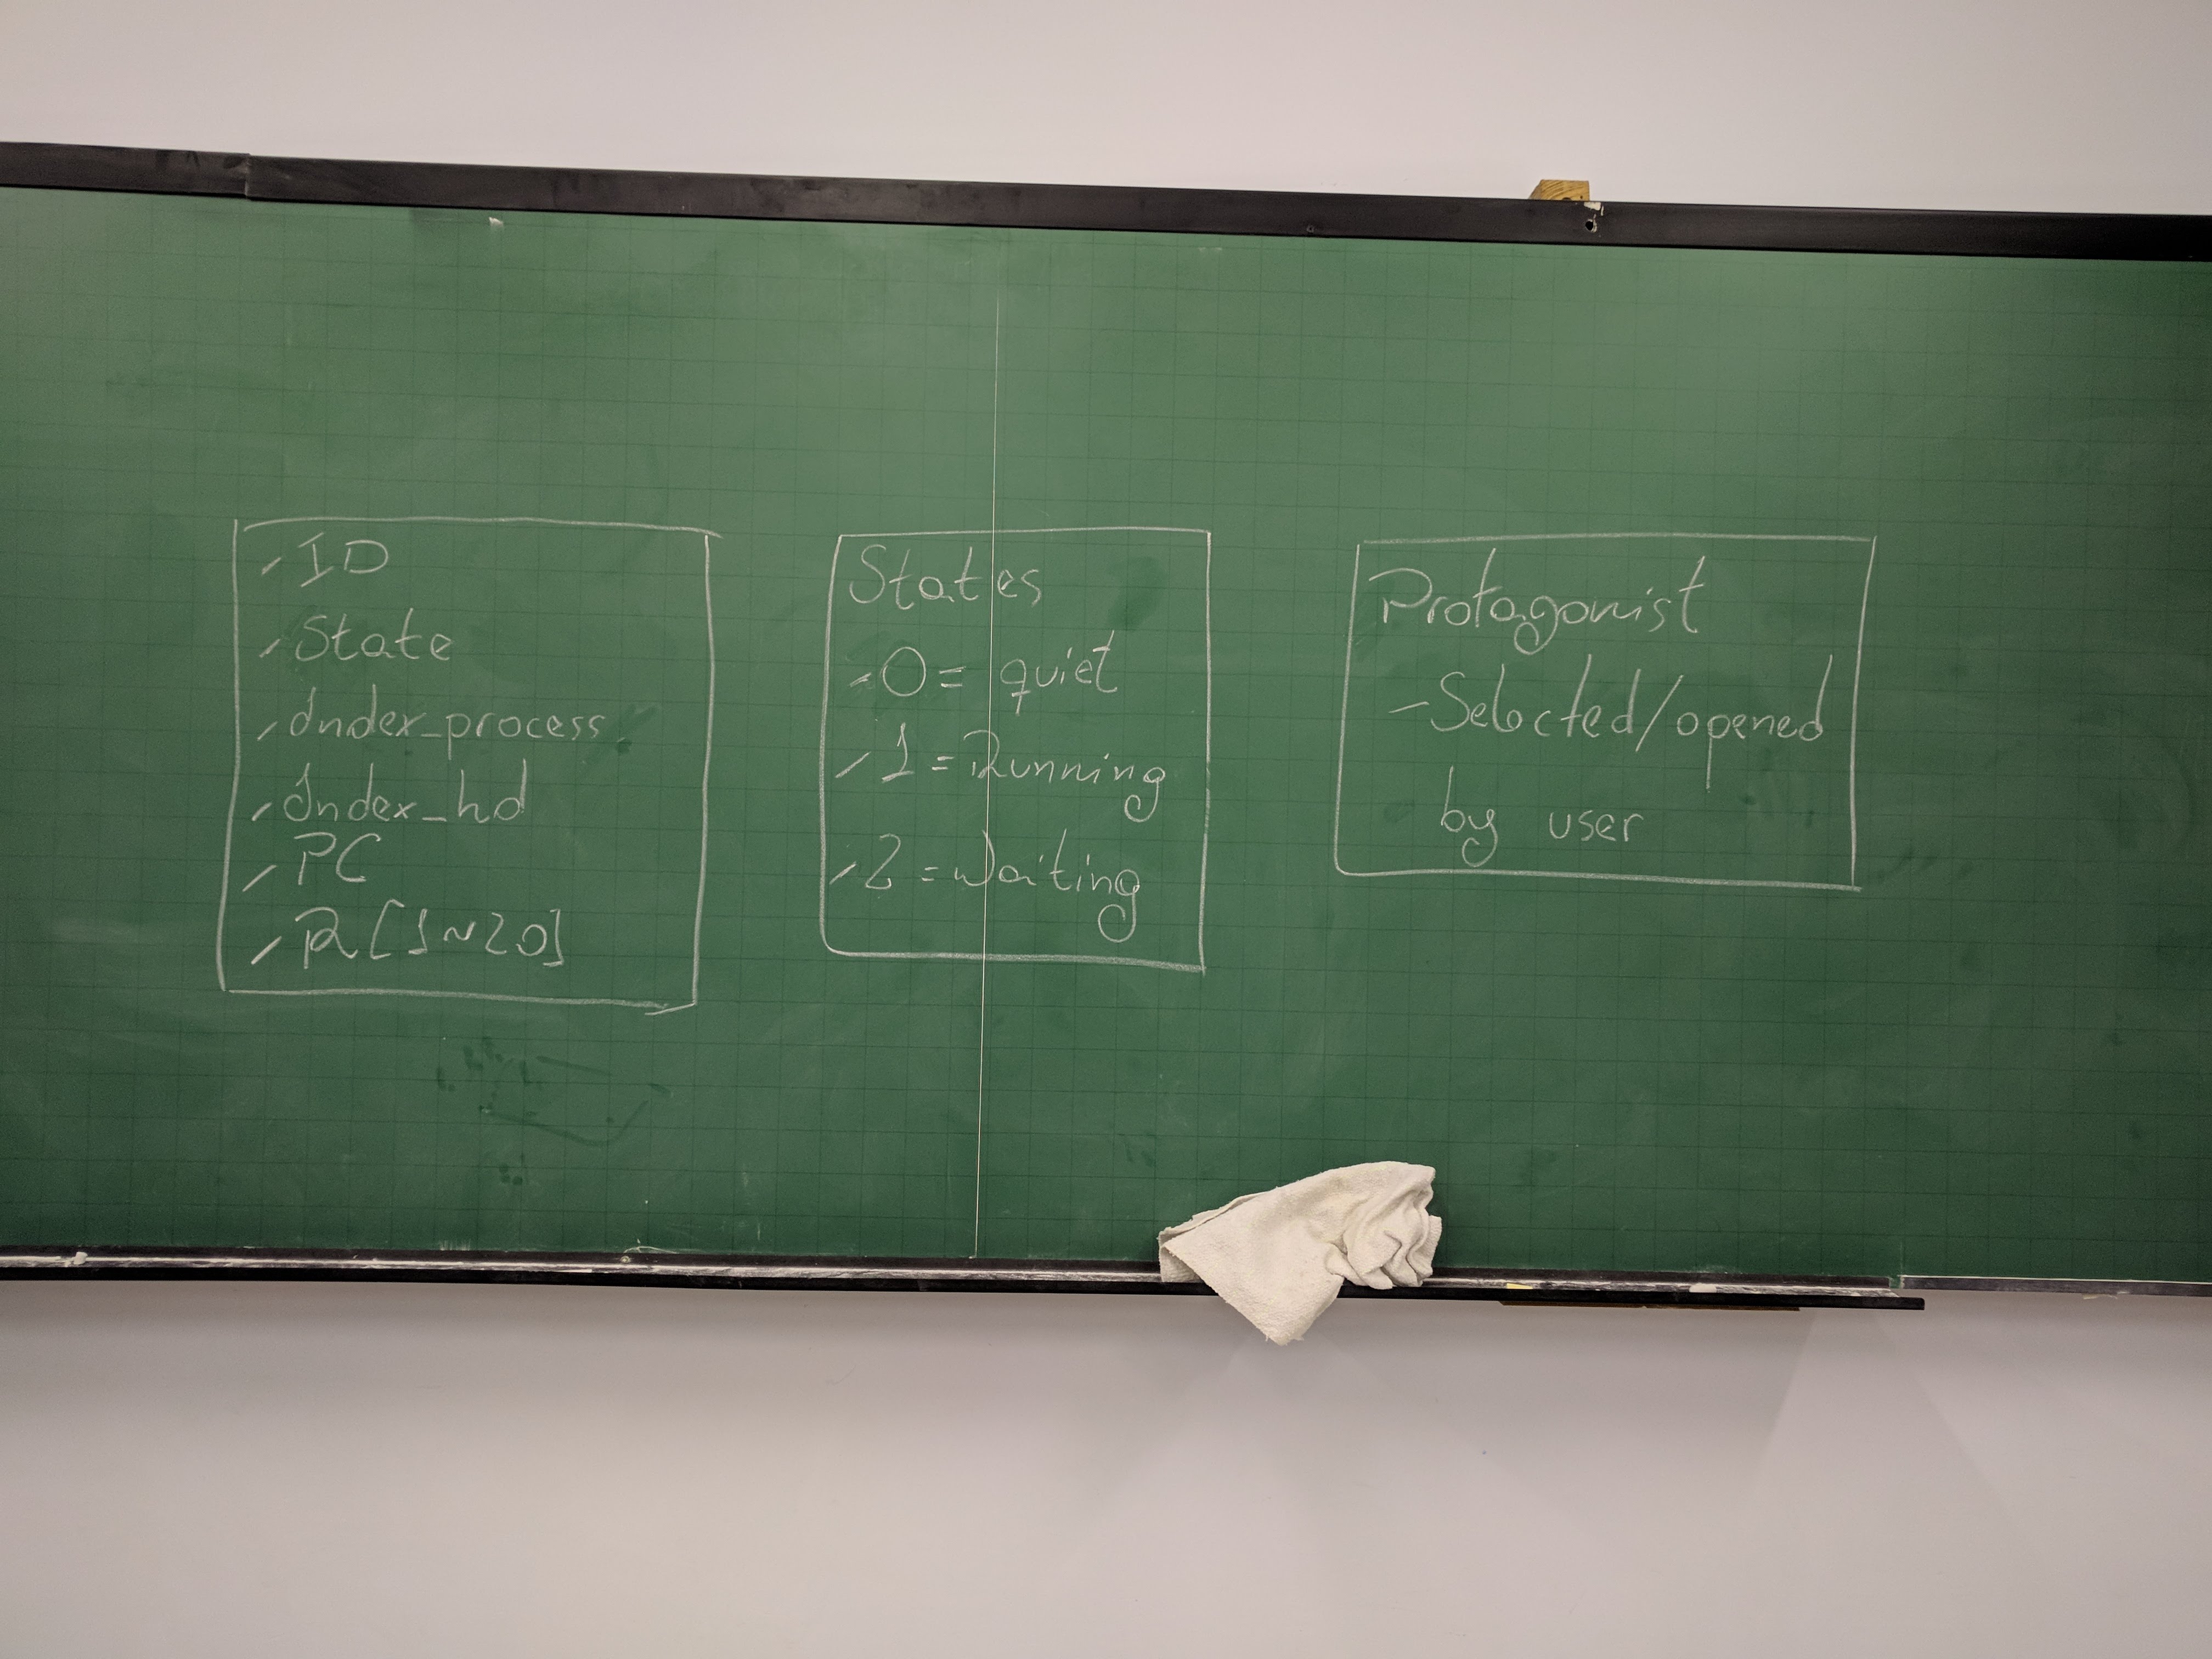 - ID
- State
- Index_process
- Index_hd
- PC
- R[1~20]
States
- 0 = quiet
- 1 = Running
- 2 = Waiting
Protagonist
- Selected/opened
by user